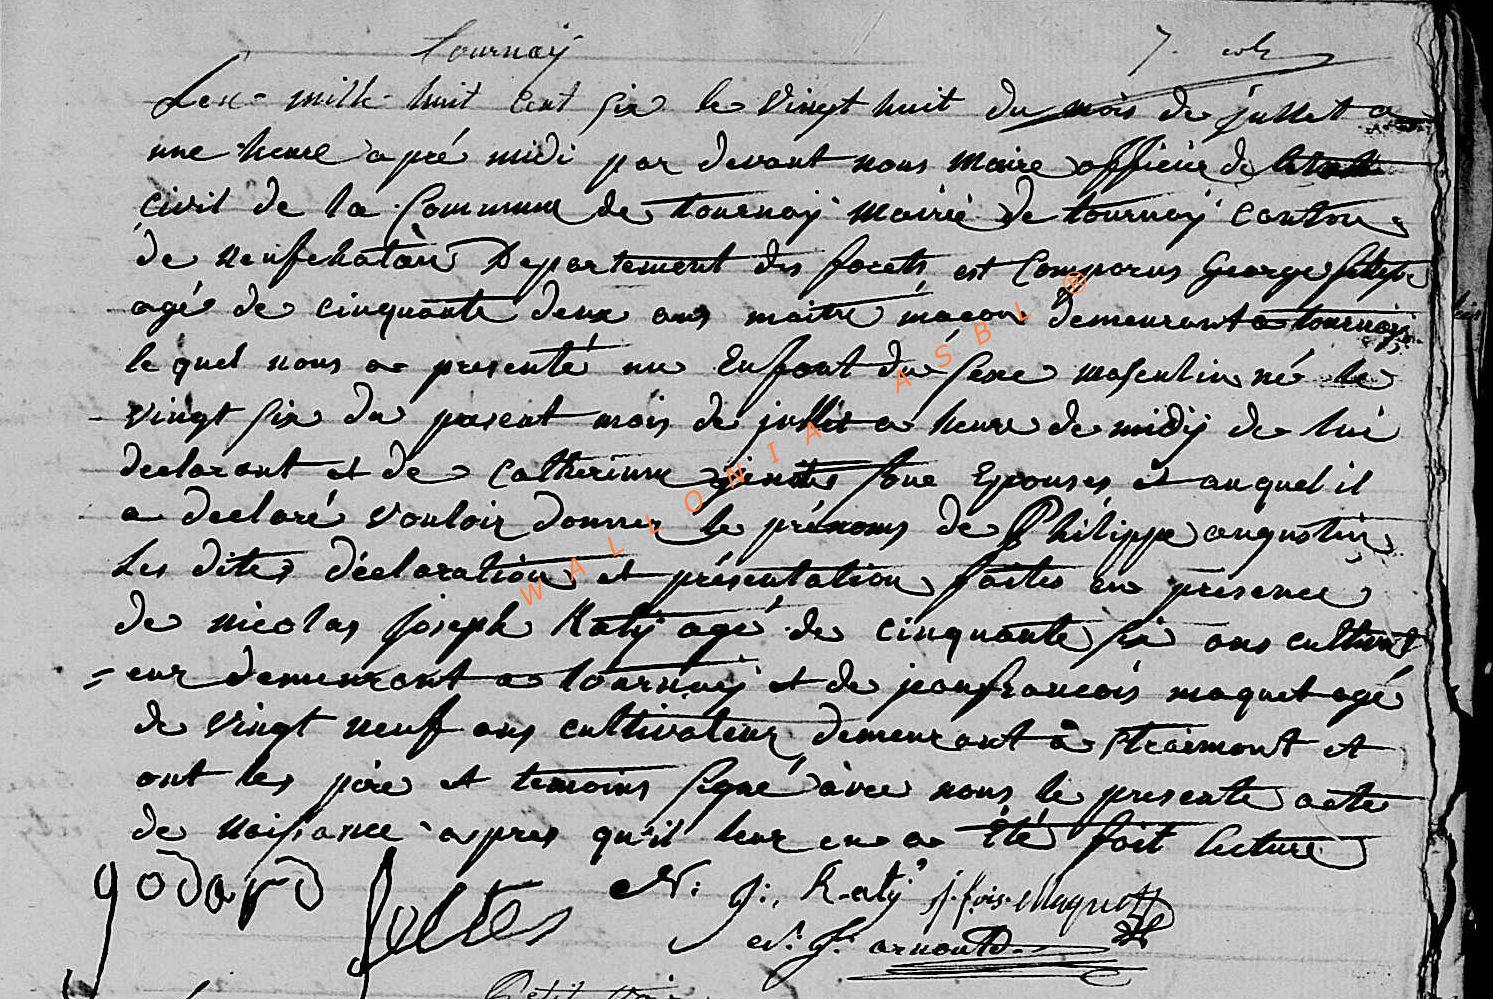 tournaÿ
L'en mille huit cent six le vingt huit du mois de jullet a
une heure apré midi par devant nous maire officier de
civil de la Commune de tournaÿ mairie de tournaÿ canton
de neufchatau Departement des forets est Comparus George feltesse
agé de cinquante deux ans maitre macon demeurant a tournaÿ
le quel nous a presenté un Enfant du sexe masculin né le
vingt six du present mois de jullet a heure de midÿ de lui
declarant et de Catherinne sone Epouses et auquel il
a declaré vouloir donner le prénoms de Philippe augustin
Les dites déclaration et présentation faites en presence
de nicolas joseph Katÿ agé de cinquante six ans cultivat
= eur demeurant a tournaÿ et de jeanfrancois maquet agé
de vingt neuf ans cultivateur demeurant à straimont et
ont les pére et temoins signé avec nous le presente acte
de naissance apres qu'il leur en a Eté fait lecture
godard feltes N: j: Katÿ j. fois. Maquet
N. J. arnould
W A L L O N I A A S B L ®